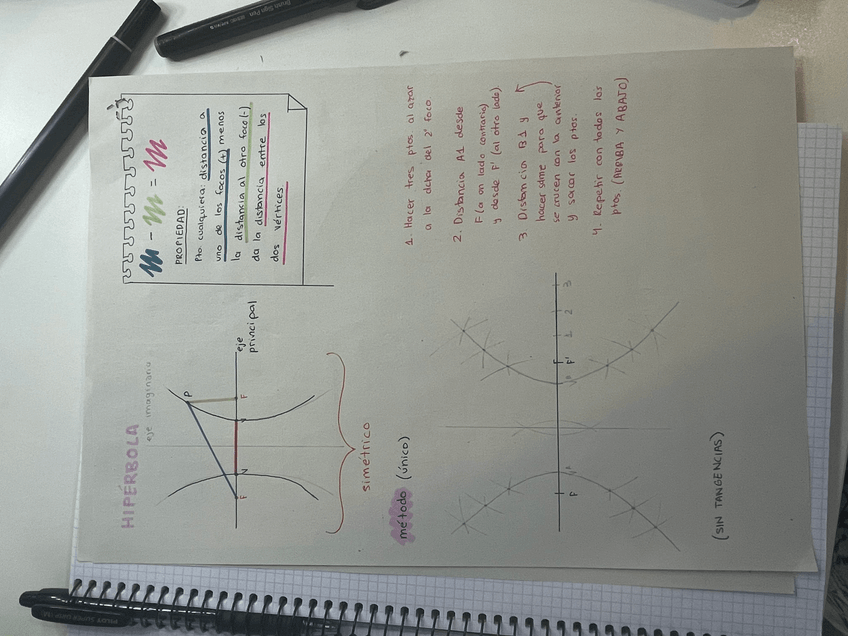 HIPÉRBOLA
eje imaginario
P
F
V
V
F
eje
principal
simétrico
m - m = m
PROPIEDAD:
Pto cualquiera: distancia a
uno de los focos (+) menos
la distancia al otro foco (-)
da la distancia entre los
dos vértices
método (único)
1. Hacer tres ptos al azar
a la dcha del 2º foco.
2. Distancia A1 desde
F (a un lado contrario)
y desde F' (al otro lado).
3 Distancia B1 y
hacer same para que
se crucen con la anterior
y sacar los ptos.
4. Repetir con todos los
ptos (ARRIBA Y ABAJO)
F
F
F'
1
2
3
(SIN TANGENCIAS)